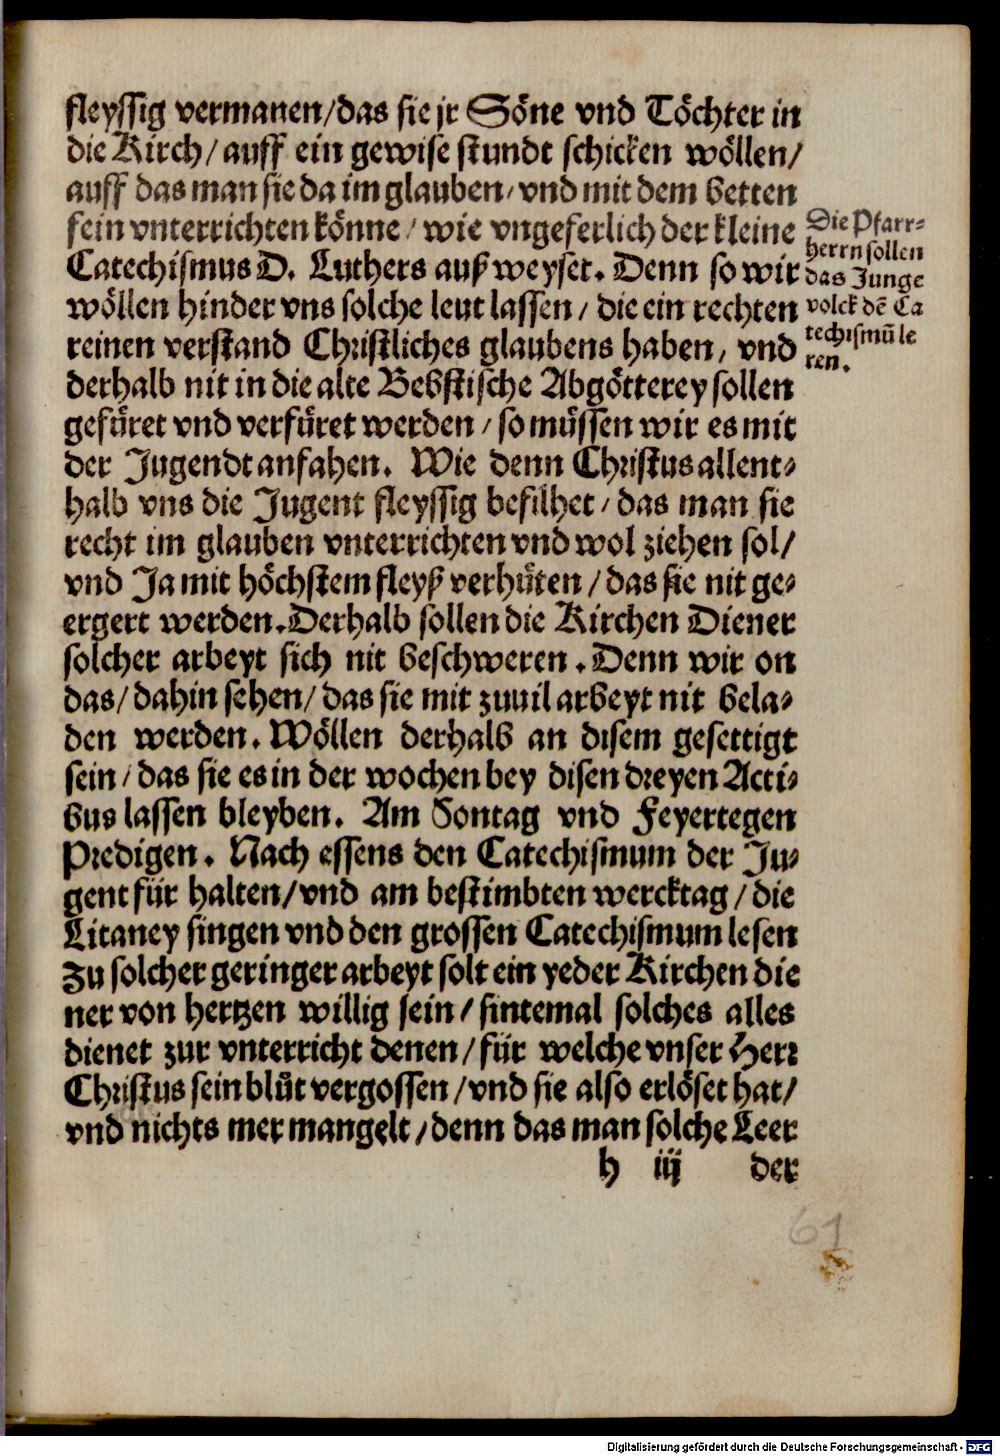 fleyssig vermanen/das sie jr Söne vnd Töchter in
die Kirch/ auff ein gewise stundt schicken wöllen/
auff das man sie da im glauben/ vnd mit dem betten
fein vnterrichten könne/ wie vngeferlich der kleine
Catechismus D. Luthers auß weyset. Denn so wir
wöllen hinder vns solche leut lassen/ die ein rechten
reinen verstand Christliches glaubens haben/ vnd
derhalb nit in die alte Bebstische Abgötterey sollen
gefüret vnd verfüret werden/ so müssen wir es mit
der Jugendt anfahen. Wie denn Christus allent⸗
halb vns die Jugent fleyssig befilhet/ das man sie
recht im glauben vnterrichten vnd wol ziehen sol/
vnd Ja mit höchstem fleyß verhüten/ das sie nit ge⸗
ergert werden. Derhalb sollen die Kirchen Diener
solcher arbeyt sich nit beschweren. Denn wir on
das/ dahin sehen/ das sie mit zuuil arbeyt nit bela⸗
den werden. Wöllen derhalb an disem gesettigt
sein/ das sie es in der wochen bey disen dreyen Acti⸗
bus lassen bleyben. Am Sontag vnd Feyertegen
Predigen. Nach essens den Catechismum der Ju⸗
gent für halten/ vnd am bestimbten wercktag/ die
Litaney singen vnd den grossen Catechismum lesen
Zu solcher geringer arbeyt solt ein yeder Kirchen die
ner von hertzen willig sein/ sintemal solches alles
dienet zur vnterricht denen/ für welche vnser Herr
Christus sein blůt vergossen/ vnd sie also erlöset hat/
vnd nichts mer mangelt/ denn das man solche Leer
h iij der
Die Pfarr⸗
herrn sollen
das Junge
volck dē Ca
techismū le
ren.
61
Digitalisierung gefördert durch die Deutsche Forschungsgemeinschaft - DFG